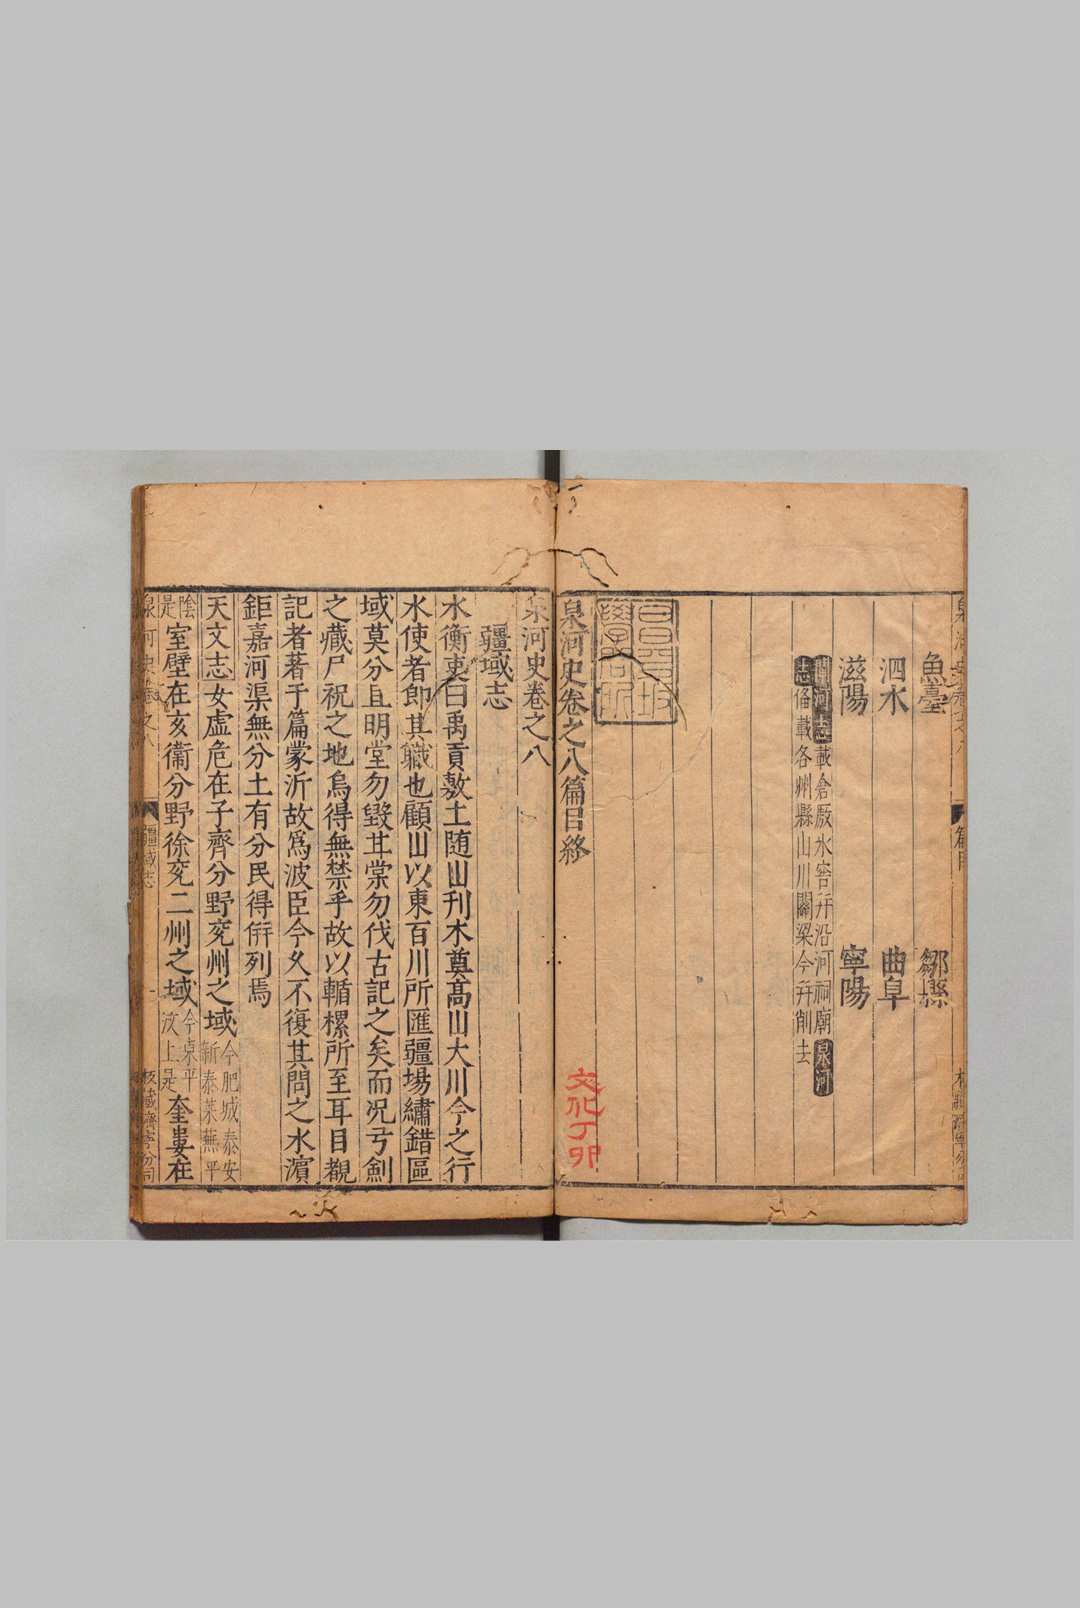 魚臺 鄒縣
泗水 曲阜
滋陽 寧陽
閘河志載倉廠水窖幷沿河祠廟泉河
志俻載各州縣山川關梁今幷削去
昌平坂
學問所
泉河史卷之八篇目終
文化丁卯
泉河史卷之八
疆域志
水衡吏曰禹貢敷土随山刋木奠髙山大川今之行
水使者卽其職也顧山以東百川所匯疆場繡錯區
域莫分且明堂勿毀甘棠勿伐古記之矣而况弓劍
之藏尸祝之地烏得無禁乎故以輶樏所至耳目覩
記者著于篇蒙沂故爲波臣今乆不復其問之水濵
鉅嘉河渠無分土有分民得倂列焉
天文志女虛危在子齊分野兖州之域今肥城泰安
新泰萊蕪平
陰
是室壁在亥衞分野徐兖二州之域今東平
汶上是奎婁在
泉河史卷之八
疆域志
一
板藏濟寧分司